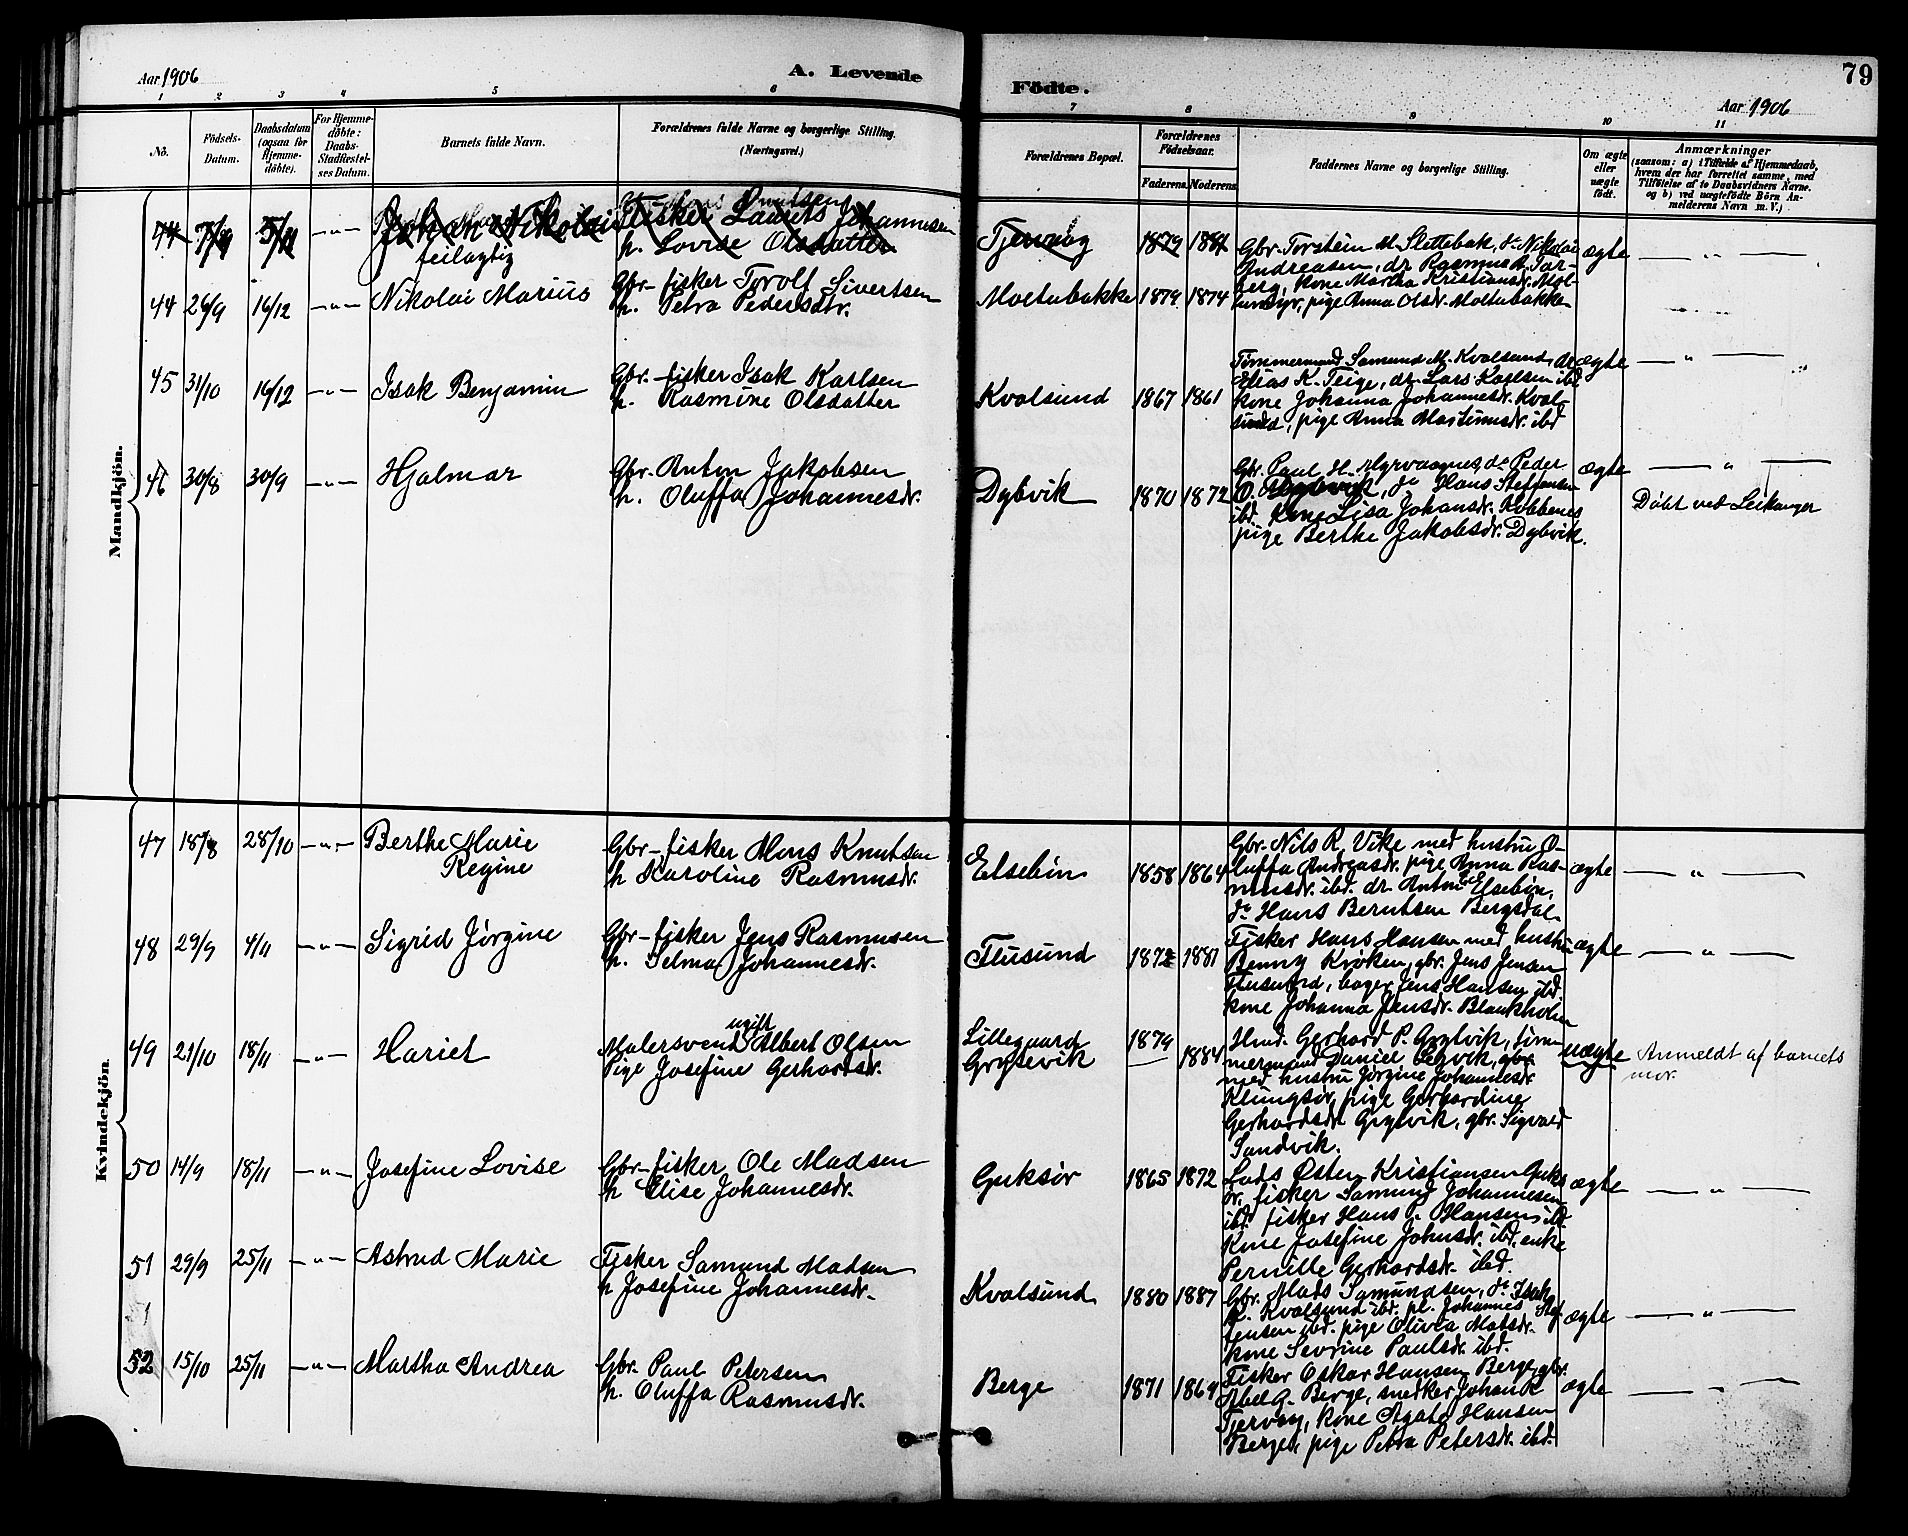 Aar 1906
A. Levende Födte.
Aar 1906
79
1 2 3 4 5 6 7 8 9 10 11
No.
Födsels-Datum.
Daabsdatum (ogsaa for Hjemmedöbte).
For Hjemmedöbte: Daabs-Stadfæstelses Datum.
Barnets fulde Navn.
Forældrenes fulde Navne og borgerlige Stilling.
(Næringsvei.)
Forældrenes Bopæl.
Forældrenes Födselsaar.
Faderens. Moderens.
Faddernes Navne og borgerlige Stilling.
Om ægte eller uægte födt.
Anmærkninger
(saasom: a) i Tilfælde af Hjemmedaab,
hvem der har forrettet samme, med
Tilföielse af to Daabsvidners Navne.
og b) ved uægtefödte Börn Anmelderens Navn m. V.)
Mandkjön.
44 5/11 —„— Johan Nikolai Fisker Laurits Johannesen
feilagtig h. Lovise Olsdatter
Tjervaag 1879 1881
44 26/9 16/12 —„— Nikolai Marius Gbr-fisker Torolf Sivertsen
h. Petra Pedersdtr.
Moltubakke 1879 1874
Gbr. Torstein M. Slettebak, do Nikolai
Andreasen, do Rasmus R. Tar-
berg, kone Martha Kristiansdr. Mol-
tumyr, pige Anna Olsdr. Moltubakke
ægte —„—
45 31/10 16/12 —„— Isak Benjamin Gbr-fisker Isak Karlsen
h. Rasmine Olsdatter
Kvalsund 1867 1861
Tømmermand Samund M. Kvalsund, do
Elias K. Teige, do Lars Karlsen ibd
kone Johanna Johannesdr. Kval-
sund, pige Anna Martinusdr. ibd
ægte —„—
46 30/8 30/9 —„— Hjalmar Gbr. Anton Jakobsen
h. Oluffa Johannesdr.
Dybvik 1870 1872
Gbr. Paul H. Myrvaagnes, do Peder
O. Dybvik, do Hans Steffensen
ibd. kone Lisa Johansdr. Kobbenes
pige Berthe Jakobsdr. Dybvik.
ægte —„—
Døbt ved Leikanger
Kvindekjön
47 18/8 28/10 —„— Berthe Marie
Regine
Gbr-fisker Mons Knutsen
h Karoline Rasmusdr.
Elsebøn 1858 1864
Gbr. Nils R. Vike med hustru O-
luffa Andreasdr. pige Anna Ras-
musdr. ibd. do Anton Elsebøn,
do Hans Berntsen Bergsdal
ægte —„—
48 29/9 4/11 —„— Sigrid Jørgine Gbr-fisker Jens Rasmusen
h. Selma Johannesdr.
Flusund 1872 1881
Fisker Hans Hansen med hustru
Benny Krøken, gbr. Jens Jensen
Flusund, bager Jens Hansen ibd
kone Johanna Jensdr. Blankholm
ægte —„—
49 21/10 18/11 —„— Hariet Malersvend ugift Albert Olsen
Pige Josefine Gerhardsdr.
Lillegaard
Grytevik
1879 1884
Hmd. Gerhard P. Grytvik, tøm-
mermand Daniel Leikvik, gbr
med hustru Jørgine Johannesdr
Klungsør, pige Gerhardine
Gerhardsdr Grytvik, gbr. Sigvald
Sandvik.
uægte Anmeldt af barnets
mor.
50 14/9 18/11 —„— Josefine Lovise Gbr-fisker Ole Madsen
h Elise Johannesdr.
Gurksør 1865 1872
Lods Østen Kristiansen Gurks-
ør, fisker Samund Johannesen
ibd fisker Hans P. Hansen ibd.
kone Josefine Johnsdr. ibd. enke
Pernille Gerhardsdr. ibd.
ægte —„—
51 29/9 25/11 —„— Astrid Marie Fisker Samund Madsen
h Josefine Johannesdr.
Kvalsund 1880 1887
Gbr. Mads Samundsen, do Isak
K. Kvalsund ibd. pl. Johannes Stef-
fensen ibd. pige Olivia Matsdr.
kone Sevrine Paulsdr. ibd.
ægte —„—
52 15/10 25/11 —„— Martha Andrea Gbr. Paul Petersen
h. Oluffa Rasmusdr.
Berge 1871 1869
Fisker Oskar Hansen Berge, gbr.
Abel G. Berge, snedker Johan R
Tjervaag, kone Agate Hansen
Berge, pige Petra Petersdr. ibd.
ægte —„—